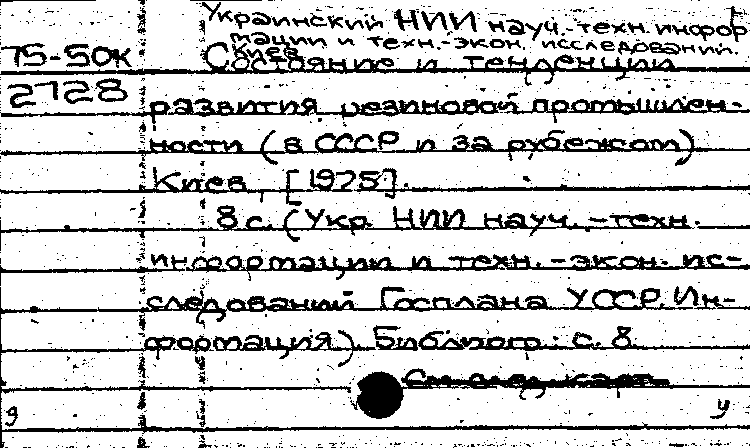 Украинский НИИ науч.-техн. инфор-
мации и техн.-экон. исследований.
Киев
75-50к Состояние и тенденции
2728 развития резиновой промышлен-
ности (в СССР и за рубежом).
Киев, [1975].
8 с. (Укр. НИИ науч.-техн.
информации и техн.-экон. ис-
следований Госплана УССР. Ин-
формация). Библиогр.: с. 8.
См. след. карт.
д у